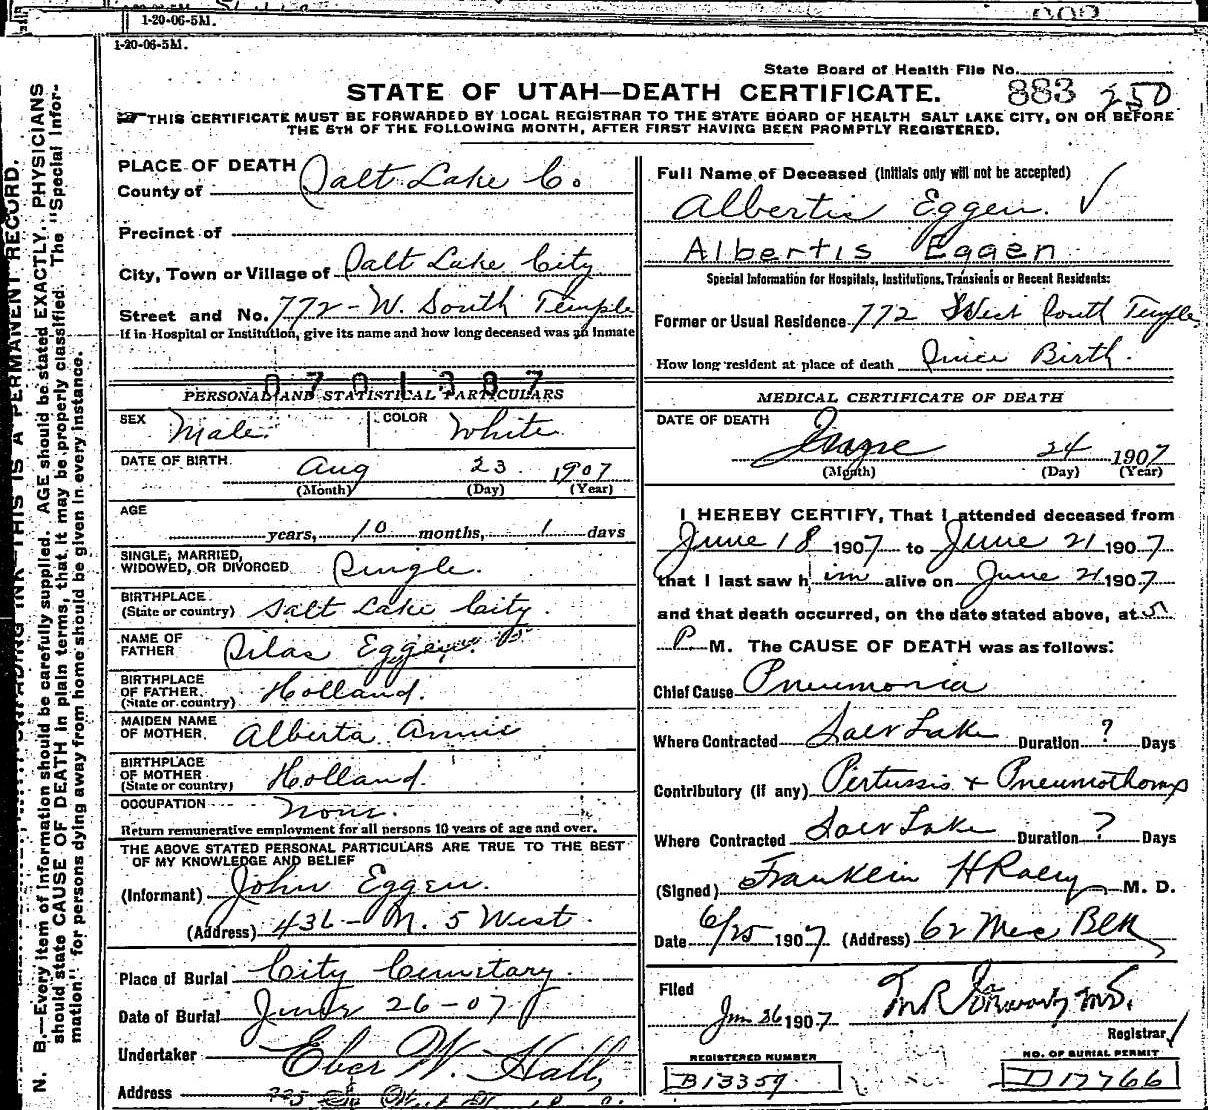 1-20-06-5M.
1-20-06-5M.
State Board of Health File No.
883 250
STATE OF UTAH—DEATH CERTIFICATE.
THIS CERTIFICATE MUST BE FORWARDED BY LOCAL REGISTRAR TO THE STATE BOARD OF HEALTH SALT LAKE CITY, ON OR BEFORE
THE 5TH OF THE FOLLOWING MONTH, AFTER FIRST HAVING BEEN PROMPTLY REGISTERED.
PLACE OF DEATH
County of Salt Lake Co.
Precinct of
City, Town or Village of Salt Lake City
Street and No. 772 - W. South Temple
If in Hospital or Institution, give its name and how long deceased was an inmate
0701387
PERSONAL AND STATISTICAL PARTICULARS
SEX Male COLOR White
DATE OF BIRTH Aug 23 1907
(Month) (Day) (Year)
AGE
years, 10 months, 1 days
SINGLE, MARRIED,
WIDOWED, OR DIVORCED Single.
BIRTHPLACE
(State or country) Salt Lake City.
NAME OF
FATHER Silas Eggen
BIRTHPLACE
OF FATHER
(State or country) Holland.
MAIDEN NAME
OF MOTHER Alberta Annie
BIRTHPLACE
OF MOTHER
(State or country) Holland.
OCCUPATION None.
Return remunerative employment for all persons 10 years of age and over.
THE ABOVE STATED PERSONAL PARTICULARS ARE TRUE TO THE BEST
OF MY KNOWLEDGE AND BELIEF
(Informant) John Eggen.
(Address) 436 - N. 5 West.
Place of Burial City Cemetary.
Date of Burial June 26-07
Undertaker Eber W. Hall,
Address
Full Name of Deceased (Initials only will not be accepted)
Albertis Eggen. ✓
Albertis Eggen
Special Information for Hospitals, Institutions, Transients or Recent Residents:
Former or Usual Residence 772 West South Temple
How long resident at place of death Since Birth.
MEDICAL CERTIFICATE OF DEATH
DATE OF DEATH
June 24 1907
(Month) (Day) (Year)
I HEREBY CERTIFY, That I attended deceased from
June 18 1907 to June 21 1907
that I last saw him alive on June 21 1907
and that death occurred, on the date stated above, at 5
P. M. The CAUSE OF DEATH was as follows:
Chief Cause Pneumonia
Where Contracted Salt Lake Duration ? Days
Contributory (if any) Pertussis & Pneumothorax
Where Contracted Salt Lake Duration ? Days
(Signed) Franklin H Raley M. D.
Date 6/25 1907 (Address) 62 Mec Blk
Filed
Jun 26 1907
Registrar
REGISTERED NUMBER
B13359
NO. OF BURIAL PERMIT
D17766
N. B.—Every item of information should be carefully supplied. AGE should be stated EXACTLY. PHYSICIANS
should state CAUSE OF DEATH in plain terms, that it may be properly classified. The "Special Infor-
mation" for persons dying away from home should be given in every instance.
THIS IS A PERMANENT RECORD.